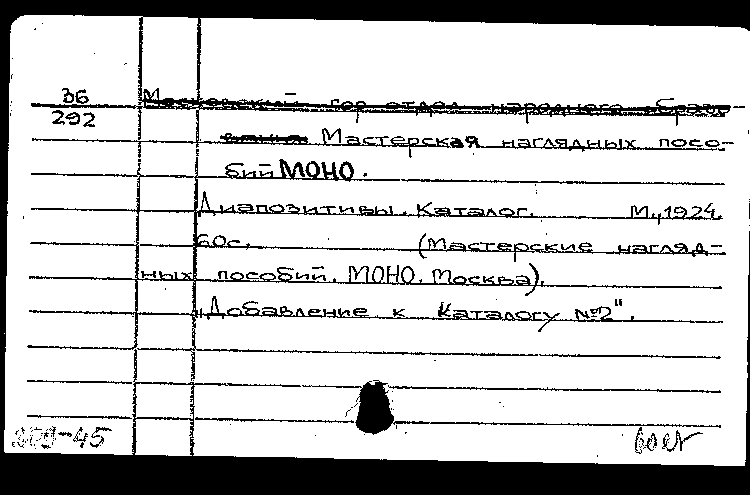 36
292
Московский гор. отдел народного образо-
вания Мастерская наглядных посо-
бий МОНО.
Диапозитивы. Каталог. М., 1924.
60с. (Мастерские нагляд-
ных пособий. МОНО. Москва).
„Добавление к Каталогу №2".
-45